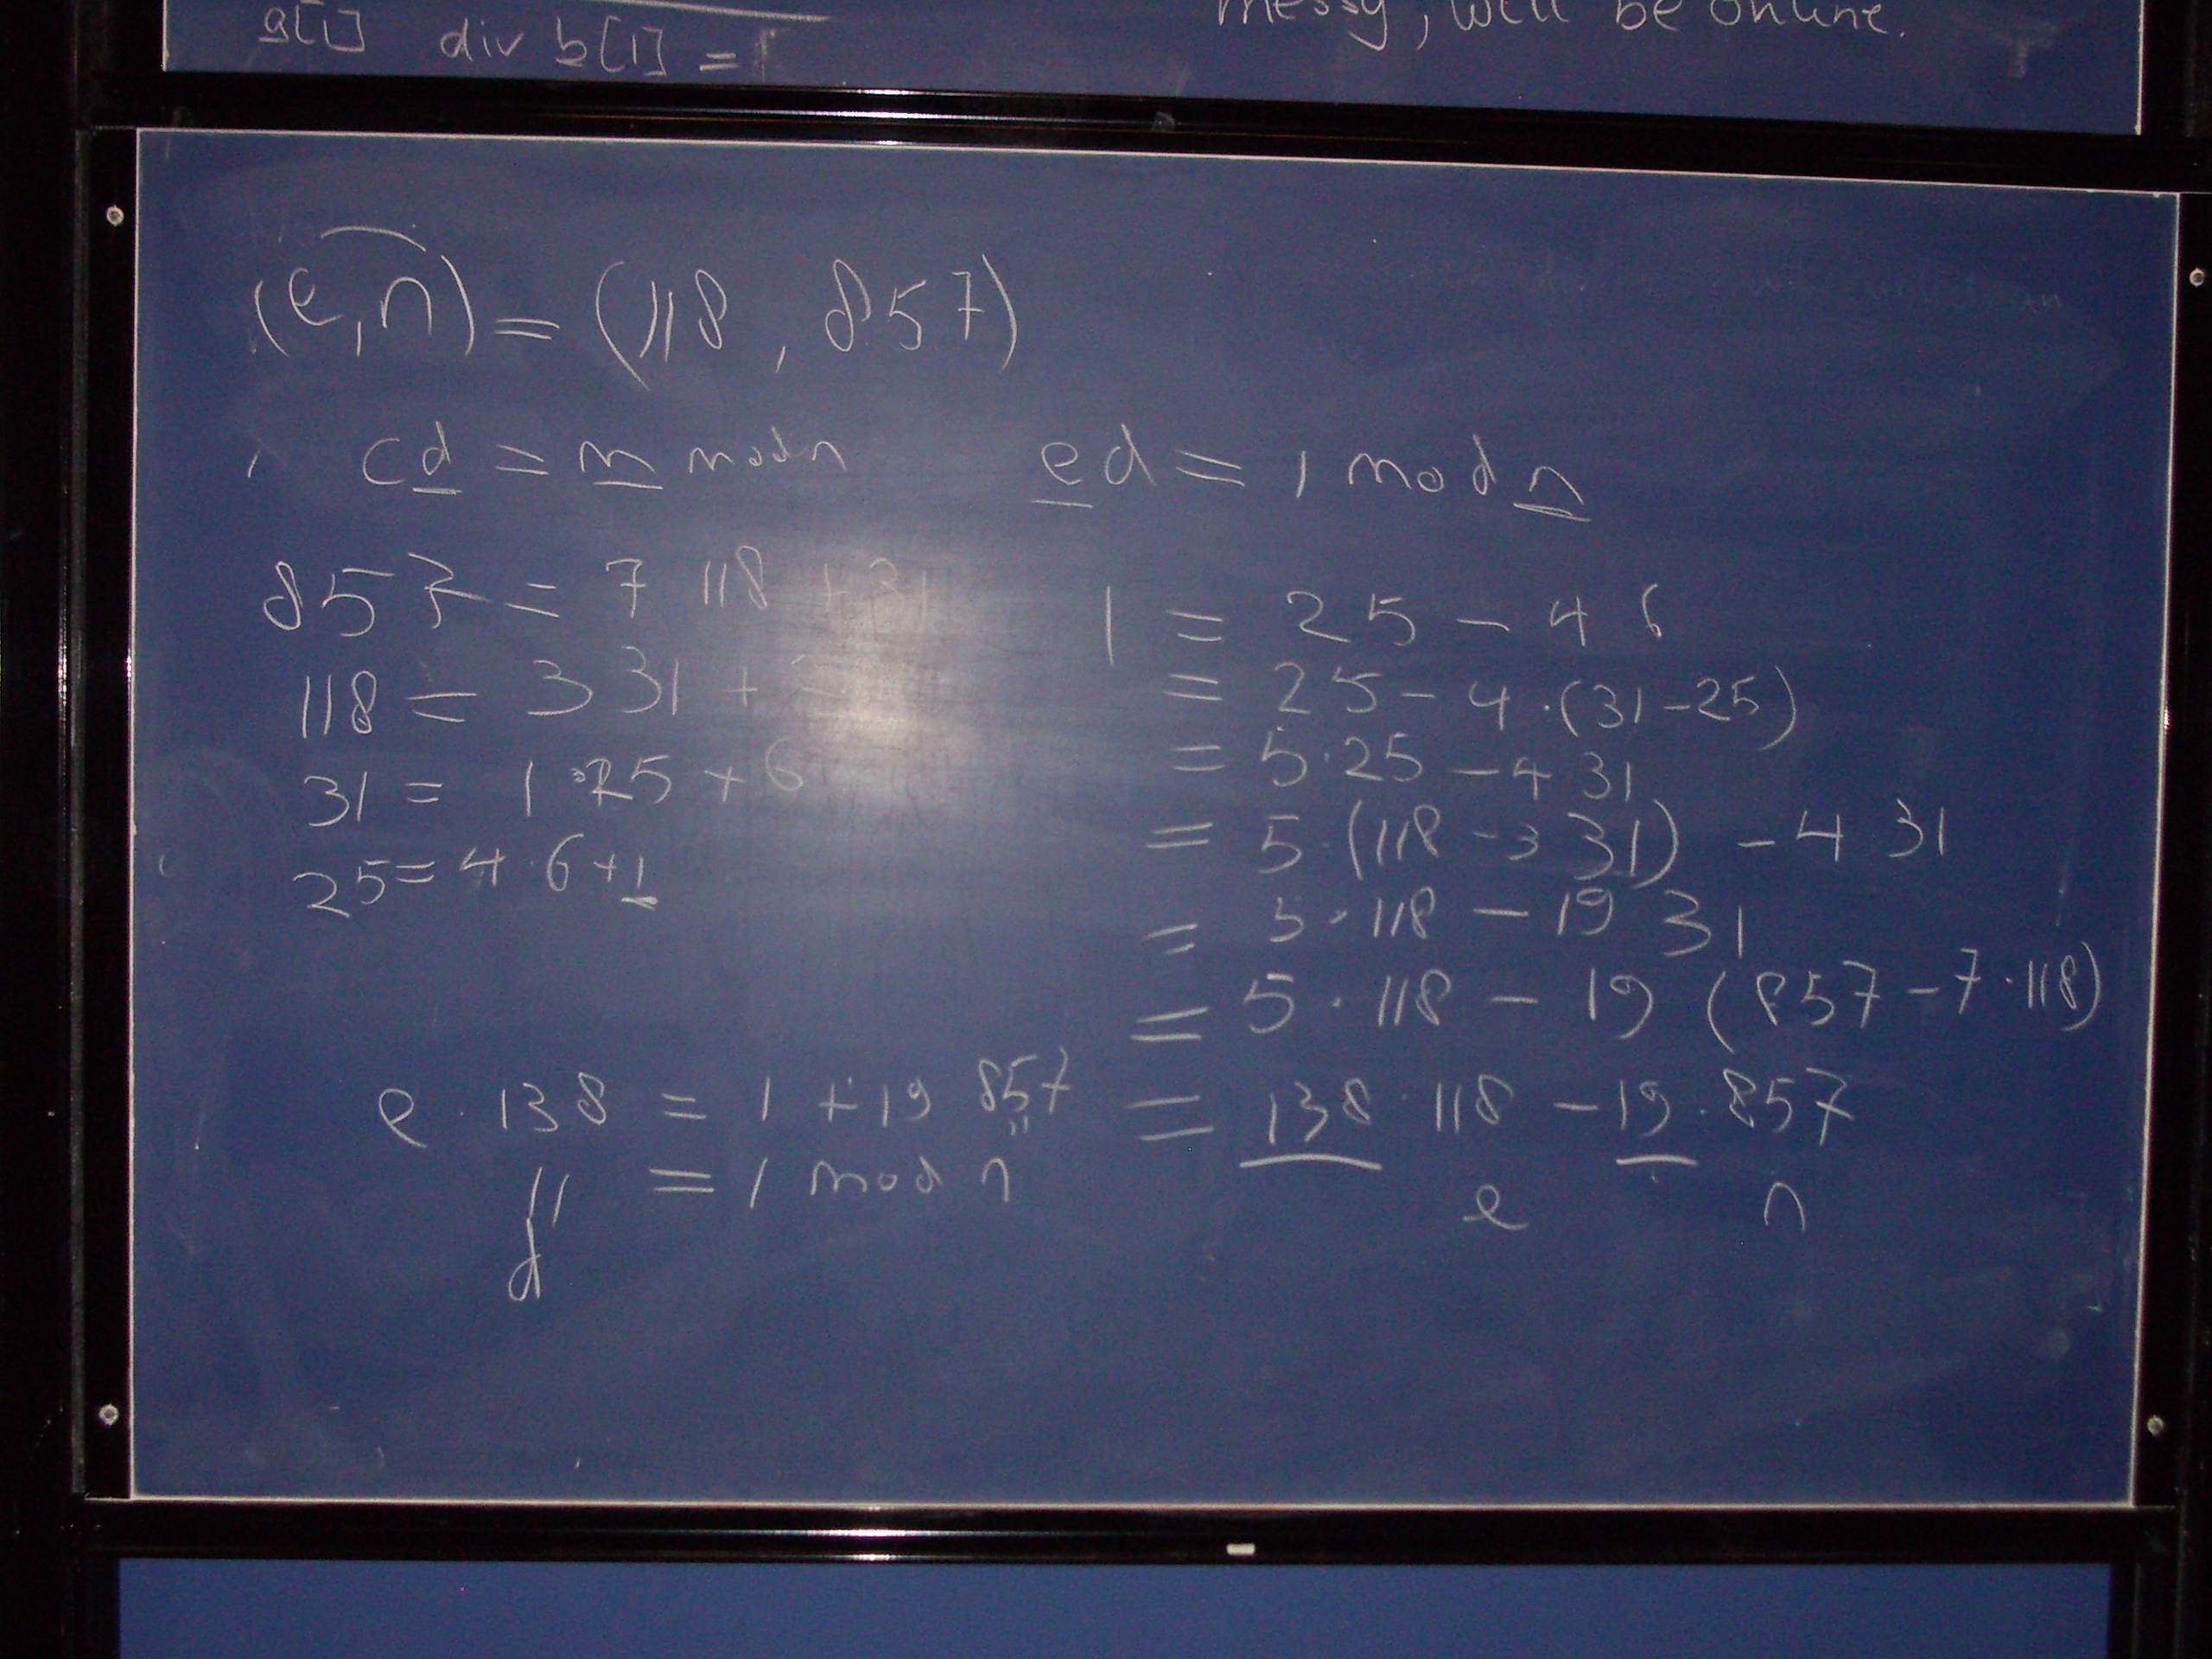 a[1] div b[1] =
messy, will be online.
(e, n) = (118, 857)
cd = m mod n
ed = 1 mod n
857 = 7 118 + 31
118 = 3 31 + 2
31 = 1 · 25 + 6
25 = 4 · 6 + 1
1 = 25 - 4 6
= 25 - 4 · (31 - 25)
= 5 · 25 - 4 31
= 5 · (118 - 3 31) - 4 31
= 5 · 118 - 19 31
= 5 · 118 - 19 (857 - 7 · 118)
= 138 · 118 - 19 · 857
e n
e · 138 = 1 + 19 857
" = 1 mod n
d